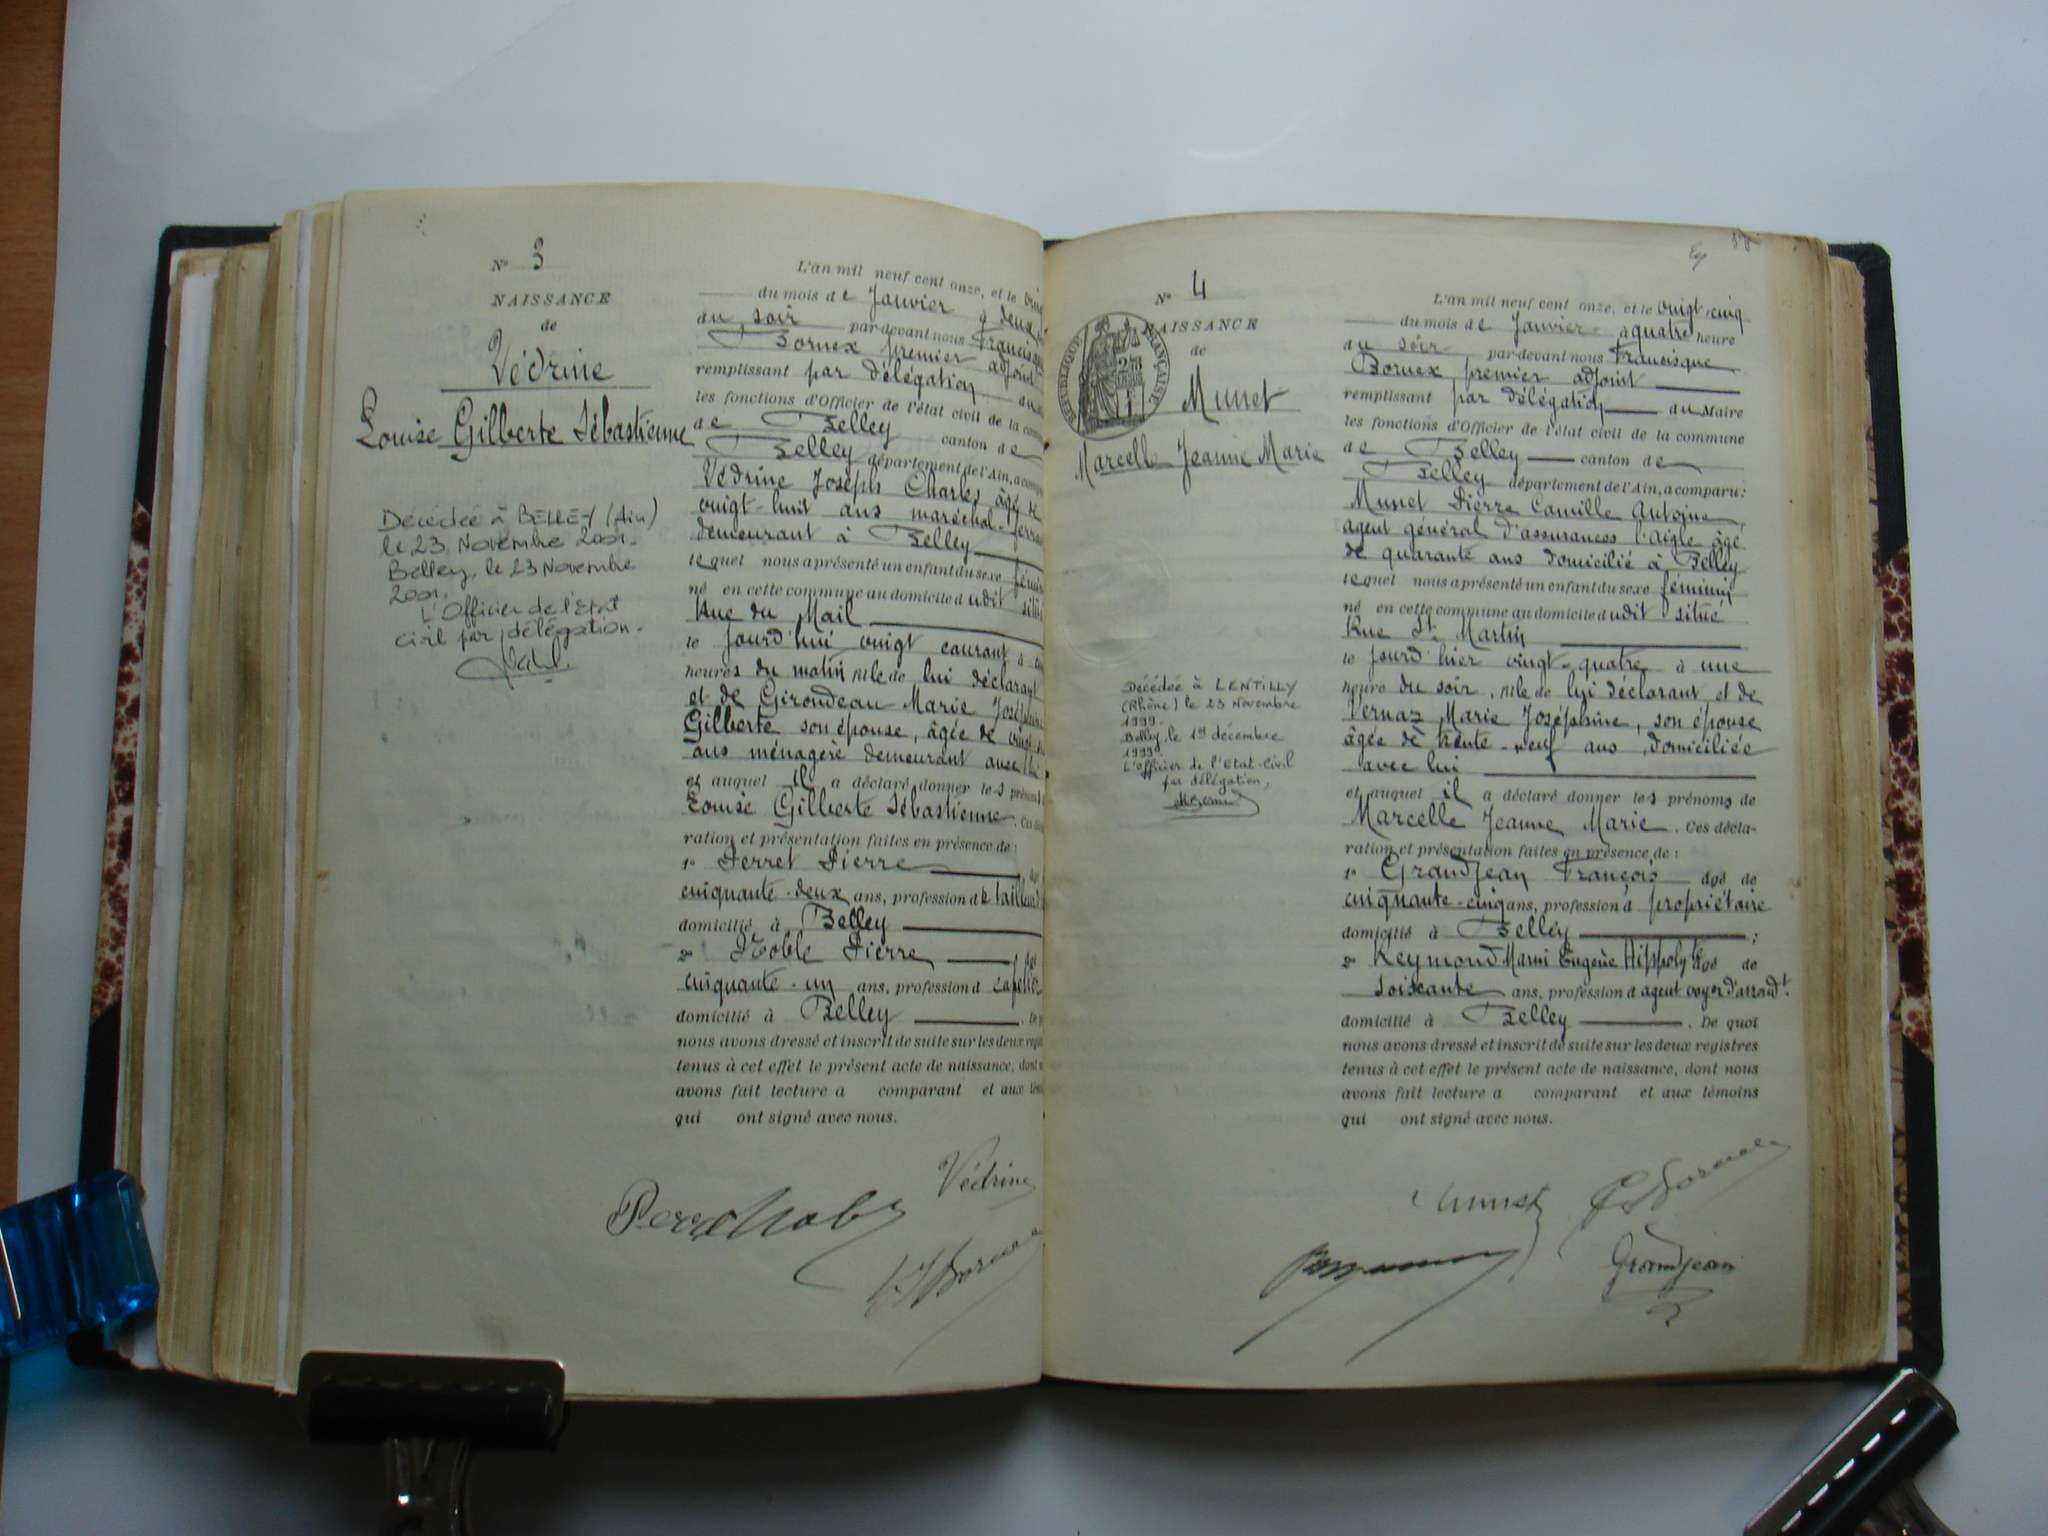 N° 3
NAISSANCE
de
Védrine
Louise Gilberte Sébastienne
Décédée à BELLEY (Ain)
le 23 Novembre 2001.
Belley, le 23 Novembre
2001.
L'Officier de l'Etat
Civil par délégation.
L'an mil neuf cent onze, et le
du mois de Janvier à deux
du soir par-devant nous Francisque
Bornex premier adjoint
remplissant par délégation du
les fonctions d'Officier de l'état civil de la
de Belley canton de
Belley département de l'Ain, a
Védrine Joseph Charles âgé de
vingt-huit ans maréchal-
demeurant à Belley
lequel nous a présenté un enfant du sexe
né en cette commune au domicile dudit
Rue du Mail
le jourd'hui vingt courant à
heures du matin, fille de lui déclarant
et de Girondeau Marie
Gilberte son épouse, âgée de
ans ménagère demeurant avec lui
et auquel il a déclaré donner les prénoms
Louise Gilberte Sébastienne. Ces
ration et présentation faites en présence de :
1° Perret Pierre
cinquante-deux ans, profession de tailleur
domicilié à Belley
2° Noble Pierre
cinquante-un ans, profession d
domicilié à Belley . De
nous avons dressé et inscrit de suite sur les deux
tenus à cet effet le présent acte de naissance, dont
avons fait lecture a comparant et aux
qui ont signé avec nous.
Védrine
N° 4
NAISSANCE
de
RÉPUBLIQUE FRANÇAISE
Munet
Marcelle Jeanne Marie
Décédée à LENTILLY
(Rhône) le 23 Novembre
1999.
Belley, le 1er décembre
1999.
L'officier de l'Etat-Civil
par délégation,
L'an mil neuf cent onze, et le vingt-cinq
du mois de Janvier à quatre heure
du soir par-devant nous Francisque
Bornex premier adjoint
remplissant par délégation du Maire
les fonctions d'Officier de l'état civil de la commune
de Belley canton de
Belley département de l'Ain, a comparu :
Munet Pierre Camille Antoine,
agent général d'assurances l'aigle âgé
de quarante ans domicilié à Belley
lequel nous a présenté un enfant du sexe féminin
né en cette commune au domicile dudit situé
Rue St. Martin
le jourd'hier vingt-quatre à une
heure du soir, fille de lui déclarant et de
Vernaz Marie Joséphine, son épouse
âgée de trente-neuf ans, domiciliée
avec lui
et auquel il a déclaré donner les prénoms de
Marcelle Jeanne Marie. Ces décla-
ration et présentation faites en présence de :
1° Grandjean François âgé de
cinquante-cinq ans, profession d propriétaire
domicilié à Belley ;
2° Reymond Eugène Hippolyte âgé de
soixante ans, profession d agent voyer d'arrondt.
domicilié à Belley . De quoi
nous avons dressé et inscrit de suite sur les deux registres
tenus à cet effet le présent acte de naissance, dont nous
avons fait lecture a comparant et aux témoins
qui ont signé avec nous.
Munet
Grandjean